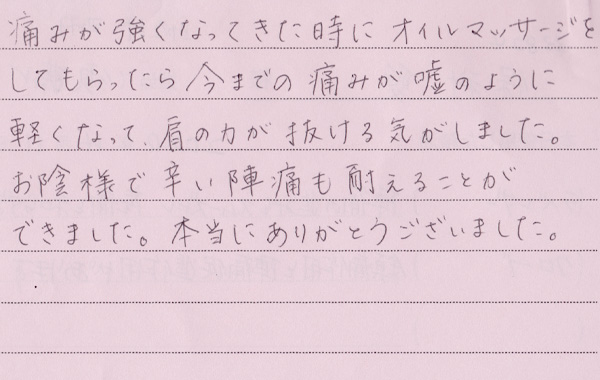 痛みが強くなってきた時にオイルマッサージを
してもらったら今までの痛みが嘘のように
軽くなって、肩の力が抜ける気がしました。
お陰様で辛い陣痛も耐えることが
できました。本当にありがとうございました。